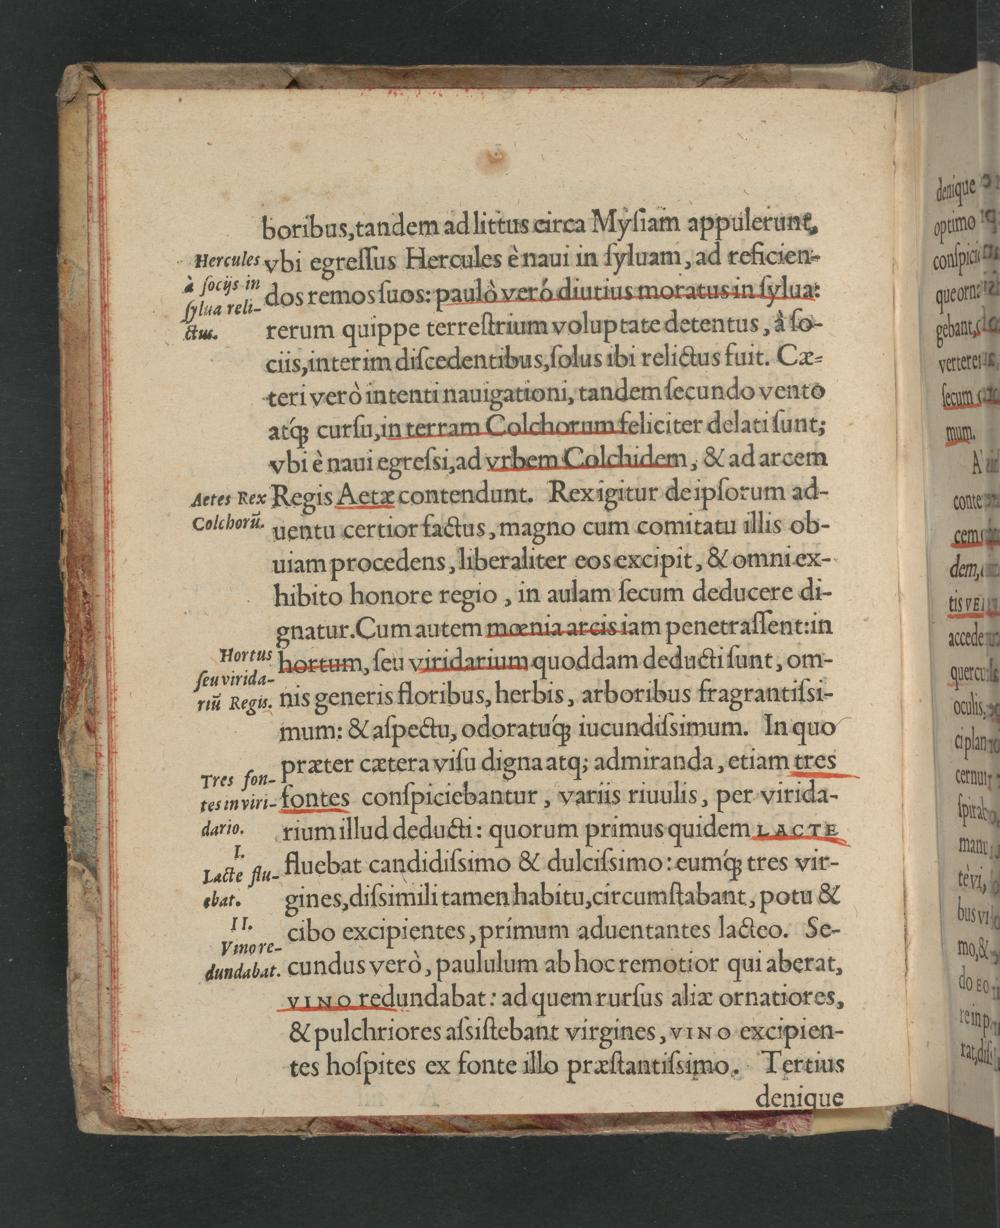 boribus, tandem ad littus circa Myſiam appulerunt,
vbi egreſſus Hercules è naui in ſyluam, ad reficien-
dos remos ſuos: paulò verò diutius moratus in ſylua:
rerum quippe terreſtrium voluptate detentus, à ſo-
ciis, interim diſcedentibus, ſolus ibi relictus fuit. Cæ-
teri verò intenti nauigationi, tandem ſecundo vento
atq́; curſu, in terram Colchorum feliciter delati ſunt;
vbi è naui egreſsi, ad vrbem Colchidem, & ad arcem
Regis Aetæ contendunt. Rex igitur de ipſorum ad-
uentu certior factus, magno cum comitatu illis ob-
uiam procedens, liberaliter eos excipit, & omni ex-
hibito honore regio, in aulam ſecum deducere di-
gnatur. Cum autem mœnia arcis iam penetraſſent: in
hortum, ſeu viridarium quoddam deducti ſunt, om-
nis generis floribus, herbis, arboribus fragrantiſsi-
mum: & aſpectu, odoratuq́; iucundiſsimum. In quo
præter cætera viſu digna atq; admiranda, etiam tres
fontes conſpiciebantur, variis riuulis, per virida-
rium illud deducti: quorum primus quidem LACTE
fluebat candidiſsimo & dulciſsimo: eumq́; tres vir-
gines, diſsimili tamen habitu, circumſtabant, potu &
cibo excipientes, prímum aduentantes lacteo. Se-
cundus verò, paululum ab hoc remotior qui aberat,
VINO redundabat: ad quem rurſus aliæ ornatiores,
& pulchriores aſsiſtebant virgines, VINO excipien-
tes hoſpites ex fonte illo præſtantiſsimo. Tertius
denique
Hercules
à ſocijs in
ſylua reli-
ctus.
Aetes Rex
Colchorū.
Hortus
ſeu virida-
riū Regis.
Tres fon-
tes in viri-
dario.
I.
Lacte flu-
ebat.
II.
Vino re-
dundabat.
denique
optimo
conſpici
que orn
gebant,
verterei
ſecum
mum.
A
conte
cem
dem,
tis VEL
accede
quercu
oculis,
ci plan
cernut
ſpirab
manu
tè vi,
bus vi
mo, &
do EO
re in p
rat, diſ